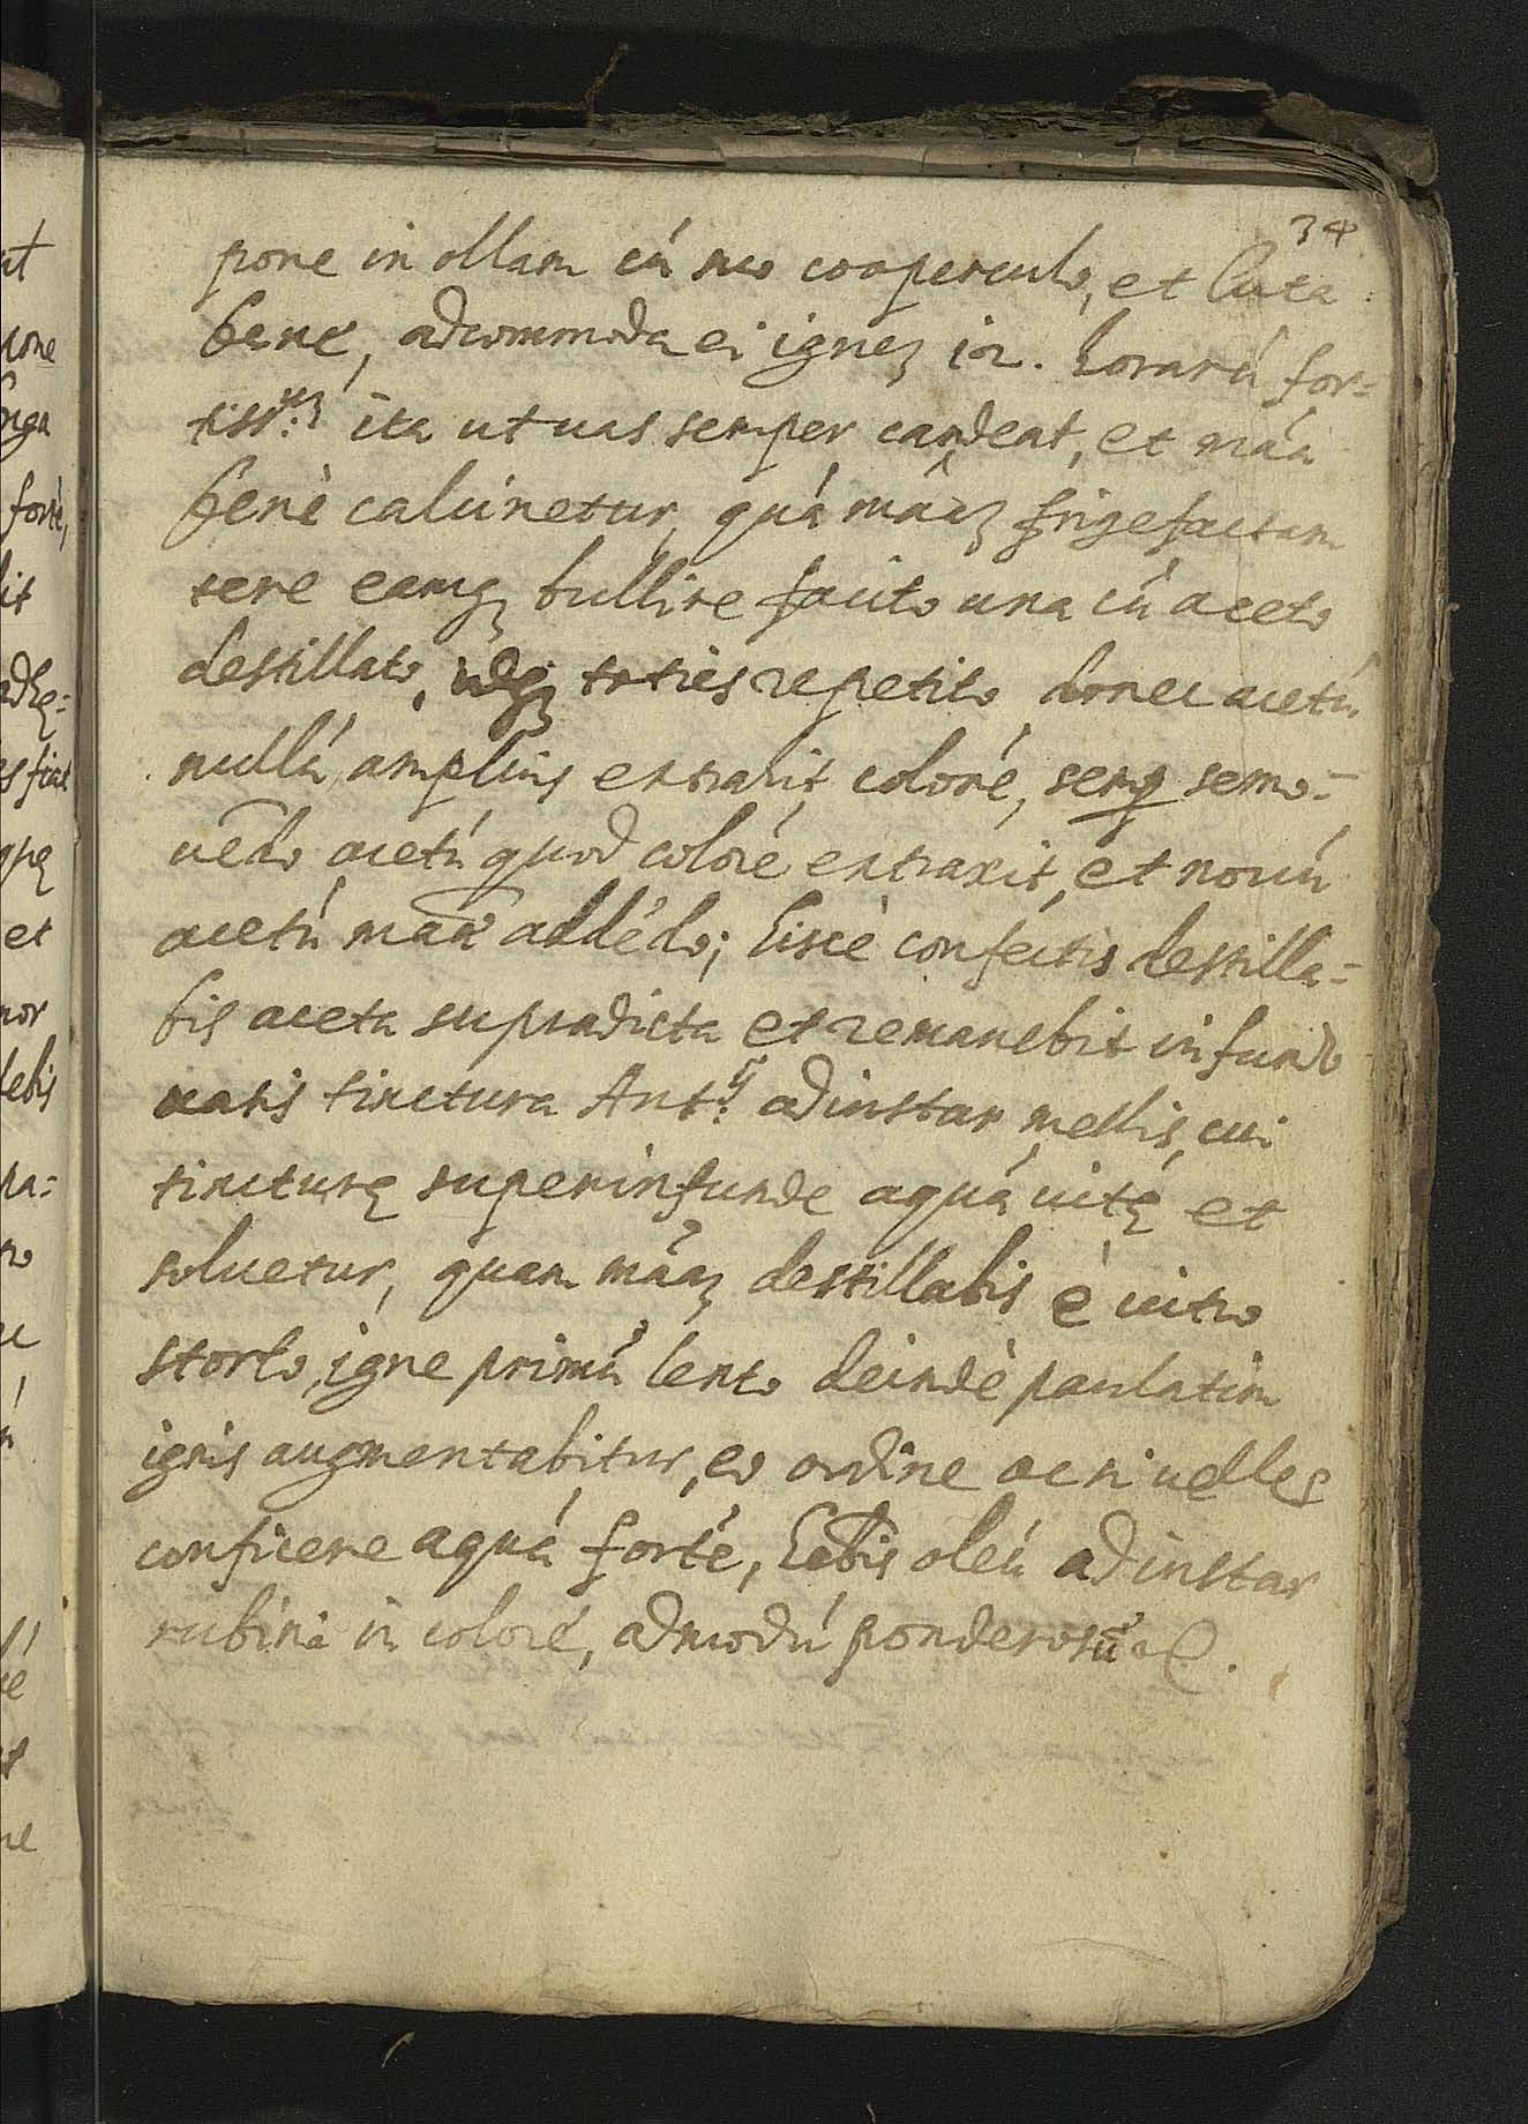 34
pone in ollam cú suo cooperculo, et luta
bene, adcommoda ei ignez 12. horarú for=
tiss.ᵘᵐ ita ut uas semper candeat, et máa
benè calcinetur, quá mâaz frigefactam
tere eamqz bullire facito una cú aceto
destillato, idqz toties repetito donec acetú
nullú amplius extraxit coloré, semp semo=
uēdo acetú quod coloré extraxit, et nouú
acetú maāē addédo; hiscè conféctis destilla=
bis aceta supradicta et remanebit in fundo
uasis tinctura Ant.ij adinstar mellis, cui
tincturę superinfunde aquá uitę et
soluetur, quam máaz destillabis è uitro
storto, igne primú lento deindè paulatim
ignis augmentabitur, eo ordine ac si uelles
conficere aquá forté, habis oleú adinstar
rubini in coloré, admodú ponderosú

ut
pone
forté,
et